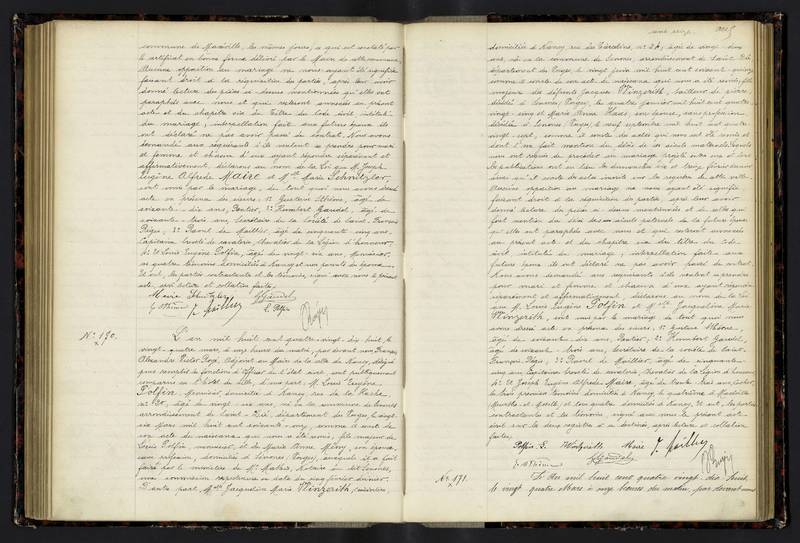 commune de Maxéville, les mêmes jours, ce qui est constaté par
le certificat en bonne forme délivré par le Maire de cette commune,
Aucune opposition au mariage ne nous ayant été signifiée
faisant droit à la réquisition des parties, après leur avoir
donné lecture des pièces ci-dessus mentionnées qui elles ont
paraphées avec nous et qui resteront annexées au présent
acte et du chapitre six du Titre du Code civil intitulé
du mariage, interpellation faite aux futurs époux ils
ont déclaré ne pas avoir passé de contrat. Nous avons
demandé aux requérants s'ils veulent se prendre pour mari
et femme et chacun d'eux ayant répondu séparément et
affirmativement, déclarons au nom de la Loi que M. Joseph
Eugène Alfrede Maire et Mlle Marie Schnitzler,
sont unis par le mariage, de tout quoi nous avons dressé
acte en présence des sieurs: 1° Gustave Thirion, âgé de
soixante-dix ans, Rentier, 2° Humbert Gaudel, âgé de
soixante-trois ans, Secrétaire de la Société de Saint-François
Régis, 3° Raoul de Maillier, âgé de cinquante cinq ans,
Capitaine breveté de cavalerie, Chevalier de la Légion d'honneur,
4° et Louis Eugène Polfin, âgé de vingt-six ans, Menuisier,
ces quatre témoins domiciliés à Nancy et non parents des époux.
Et ont, les parties contractantes et les témoins, signé avec nous le présent
acte, après lecture et collation faites.
Maire Schnitzler Gaudel
G. Thirion R. Maillier L. Polfin
N° 170.
L'an mil huit cent quatre-vingt-dix huit, le
vingt-quatre mars, à onze heures du matin, par devant nous François
Alexandre Victor
Adjoint au Maire de la ville de Nancy, délégué
pour remplir les fonctions d'Officier de l'état civil, ont publiquement
comparu en l'Hôtel de Ville, d'une part, M. Louis Eugène
Polfin, Menuisier, domicilié à Nancy, rue de la Hache
âgé de vingt-six ans, né en la commune de Senones
arrondissement de Saint-Dié, département des Vosges, le vingt
six Mars mil huit cent soixante-onze, comme il conste de
son acte de naissance qui nous a été remis, fils majeur de
Louis Polfin, menuisier, et de Marie Anne Mény, son épouse,
sans profession, domiciliés à Senones, Vosges, auxquels il a fait
faire par le ministère de Me Mathis, Notaire au dit Senones,
une sommation respectueuse en date du cinq février dernier.
D'autre part, Mlle Jacqueline Marie Winzerith, cuisinière,
domiciliée à Nancy, rue des Jardins, n° 24, âgée de vingt-deux
ans, née en la commune de Senones, arrondissement de Saint-Dié
département des Vosges, le vingt juin mil huit cent soixante quinze
comme il conste de son acte de naissance qui nous a été remis, fille
majeure des défunts Jacques Winzerith, tailleur de pierre,
décédé à Senones, Vosges, le quatre janvier mil huit cent quatre
vingt-cinq et Marie Anne Haas, son épouse, sans profession
décédée à Senones, Vosges, le neuf septembre mil huit cent quatre
vingt-sept, comme il conste des actes qui nous ont été remis et
dont il est fait mention du décès de ses aïeuls maternels. Lesquels
nous ont requis de procéder au mariage projeté entre eux et dont
les publications ont eu lieu les dimanches six et treize février dernier
ainsi qu'il conste des actes inscrits sur le registre de cette ville.
Aucune opposition au mariage ne nous ayant été signifiée
faisant droit à la réquisition des parties, après leur avoir
donné lecture des pièces ci-dessus mentionnées et de celle qui
fait mention du décès des aïeuls paternels de la future épouse
qu'elles ont paraphées avec nous et qui resteront annexées
au présent acte et du chapitre six du titre du Code
civil intitulé du mariage; interpellation faite aux
futurs époux ils ont déclaré ne pas avoir passé de contrat.
Nous avons demandé aux requérants s'ils veulent se prendre
pour mari et femme et chacun d'eux ayant répondu
séparément et affirmativement, déclarons au nom de la loi
que M. Louis Eugène Polfin et Mlle Jacqueline Marie
Winzerith, sont unis par le mariage, de tout quoi nous
avons dressé acte en présence des sieurs, 1° Gustave Thirion,
âgé de soixante-dix ans, Rentier, 2° Humbert Gaudel,
âgé de soixante-trois ans, Secrétaire de la société de Saint-
François Régis, 3° Raoul de Maillier, âgé de cinquante-
cinq ans, Capitaine breveté de cavalerie, Chevalier de la Légion d'honneur
4° et Joseph Eugène Alfrede Maire, âgé de trente-trois ans,
les trois premiers témoins domiciliés à Nancy, le quatrième à Maxéville
Meurthe-et-Moselle, et non parents des époux. Et ont, les parties
contractantes et les témoins, signé avec nous le présent acte
écrit sur les deux registres à ce destinés, après lecture et collation
faites.
Polfin L. Winzerith Maire R. Maillier
G. Thirion Gaudel
N° 171.
L'an mil huit cent quatre-vingt-dix huit,
le vingt quatre Mars à onze heures du matin, par devant nous